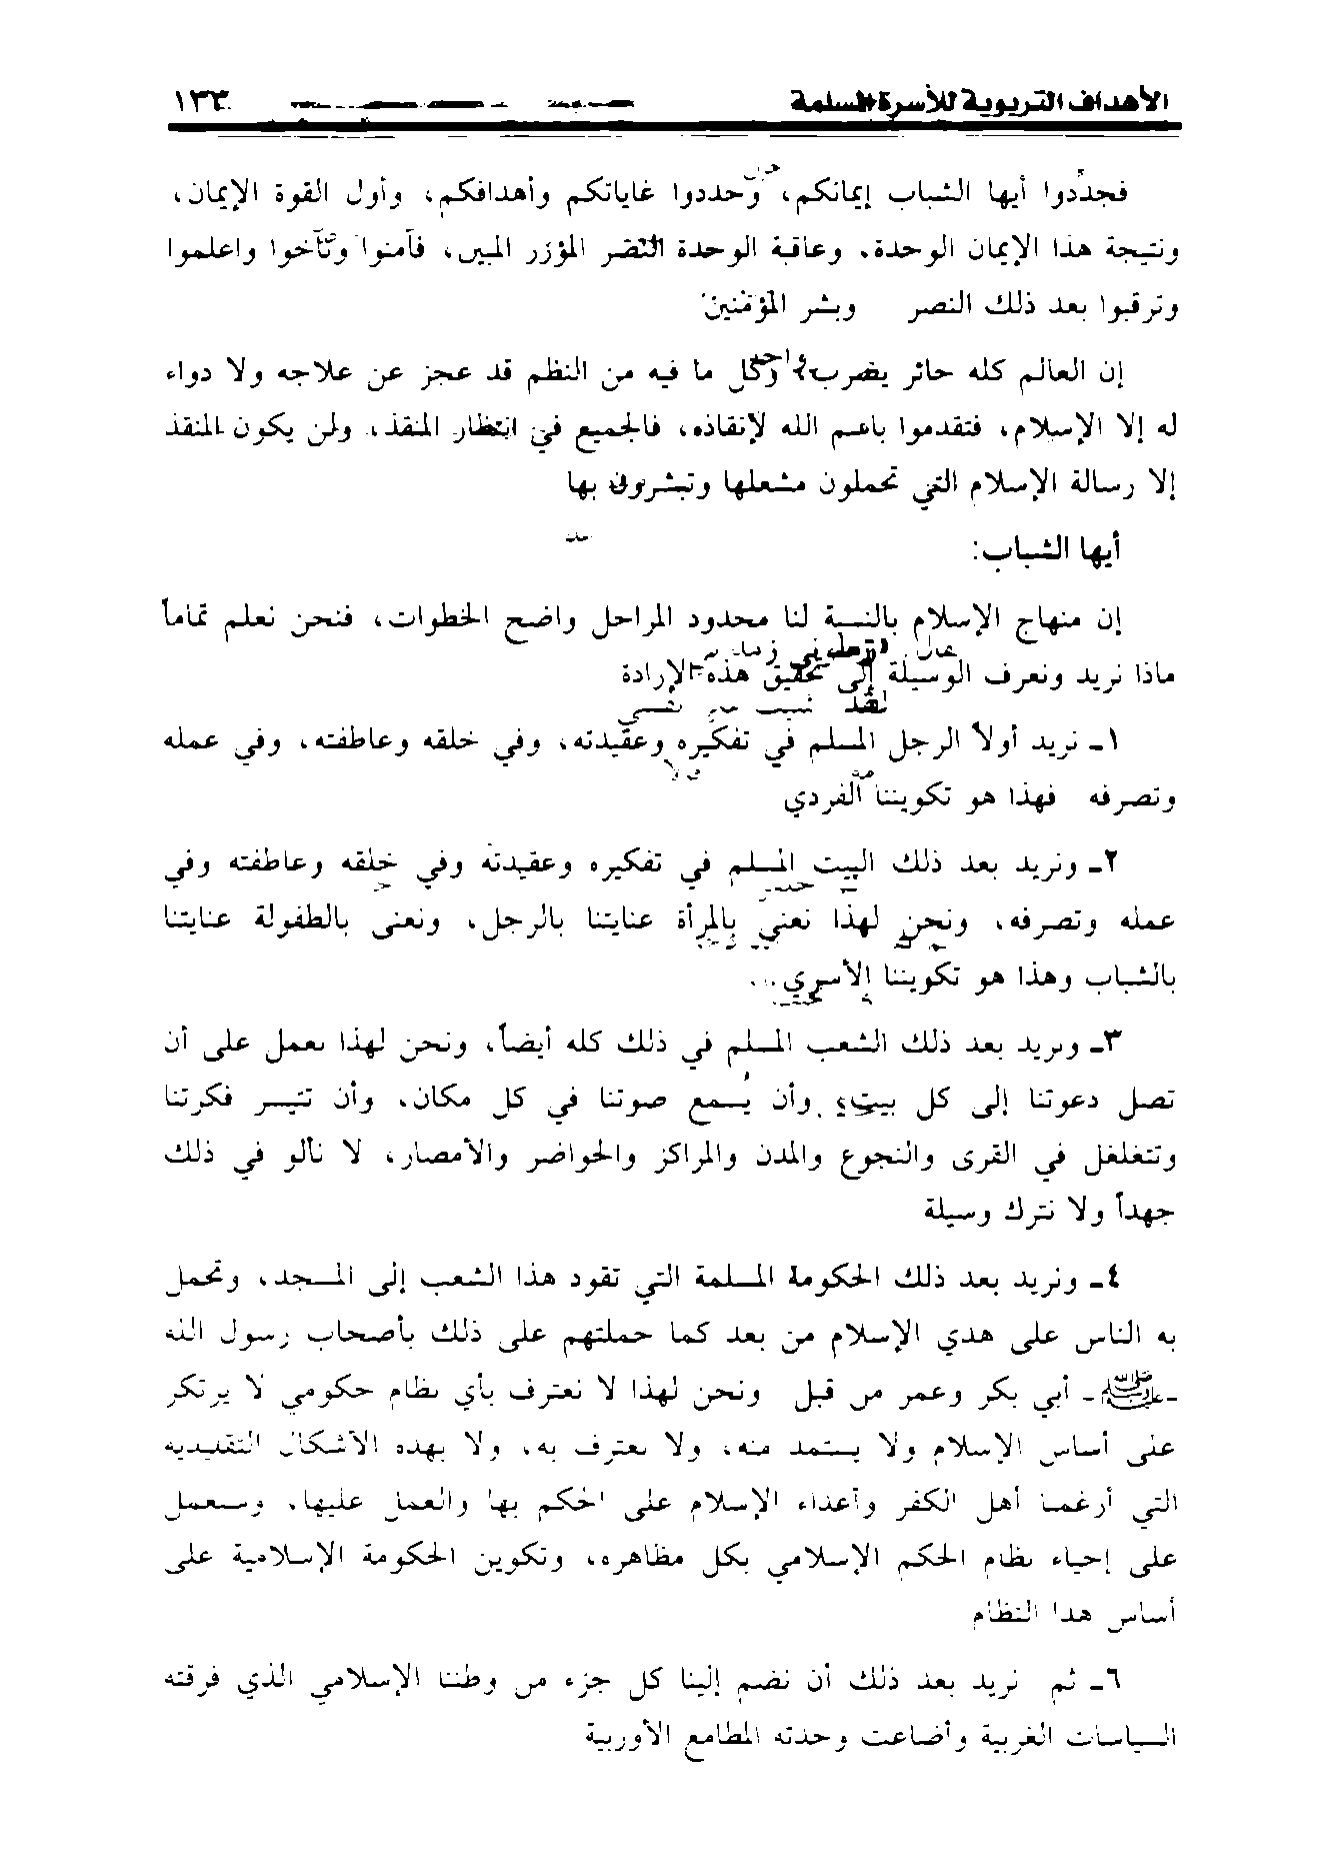 الأهداف التربوية للأسرة المسلمة ١٣٣
فجدّدوا أيها الشباب إيمانكم، وحددوا غاياتكم وأهدافكم، وأول القوة الإيمان،
ونتيجة هذا الإيمان الوحدة، وعاقبة الوحدة النصر المؤزر المبين، فآمنوا وتآخوا واعلموا
وترقبوا بعد ذلك النصر وبشر المؤمنين
إن العالم كله حائر يضرب، وكل ما فيه من النظم قد عجز عن علاجه ولا دواء
له إلا الإسلام، فتقدموا باسم الله لإنقاذه، فالجميع في انتظار المنقذ، ولن يكون المنقذ
إلا رسالة الإسلام التي تحملون مشعلها وتبشرون بها
أيها الشباب:
إن منهاج الإسلام بالنسبة لنا محدود المراحل واضح الخطوات، فنحن نعلم تماماً
ماذا نريد ونعرف الوسيلة إلى تحقيق هذه الإرادة
١ـ نريد أولاً الرجل المسلم في تفكيره وعقيدته، وفي خلقه وعاطفته، وفي عمله
وتصرفه فهذا هو تكويننا الفردي
٢ـ ونريد بعد ذلك البيت المسلم في تفكيره وعقيدته وفي خلقه وعاطفته وفي
عمله وتصرفه، ونحن لهذا نعنى بالمرأة عنايتنا بالرجل، ونعنى بالطفولة عنايتنا
بالشباب وهذا هو تكويننا الأسري ..
٣ـ ونريد بعد ذلك الشعب المسلم في ذلك كله أيضاً، ونحن لهذا نعمل على أن
تصل دعوتنا إلى كل بيت، وأن يُسمع صوتنا في كل مكان، وأن تتيسر فكرتنا
وتتغلغل في القرى والنجوع والمدن والمراكز والحواضر والأمصار، لا نألو في ذلك
جهداً ولا نترك وسيلة
٤ـ ونريد بعد ذلك الحكومة المسلمة التي تقود هذا الشعب إلى المسجد، وتحمل
به الناس على هدي الإسلام من بعد كما حملتهم على ذلك بأصحاب رسول الله
-ﷺ- أبي بكر وعمر من قبل ونحن لهذا لا نعترف بأي نظام حكومي لا يرتكز
على أساس الإسلام ولا يستمد منه، ولا نعترف به، ولا بهذه الأشكال التقليدية
التي أرغمنا أهل الكفر وأعداء الإسلام على الحكم بها والعمل عليها، وسنعمل
على إحياء نظام الحكم الإسلامي بكل مظاهره، وتكوين الحكومة الإسلامية على
أساس هذا النظام
٦ـ ثم نريد بعد ذلك أن نضم إلينا كل جزء من وطننا الإسلامي الذي فرقته
السياسات الغربية وأضاعت وحدته المطامع الأوربية